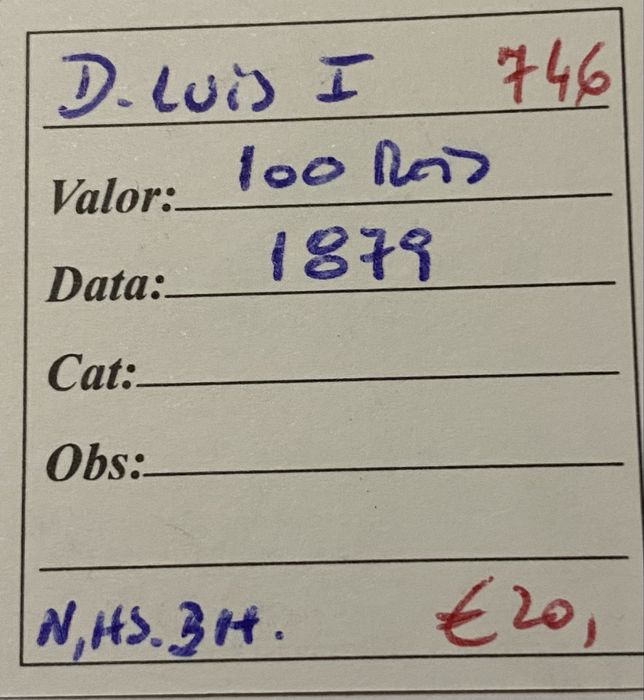 D. Luis I 746
Valor: 100 Reis
Data: 1879
Cat:
Obs:
N,HS.3H. €20,